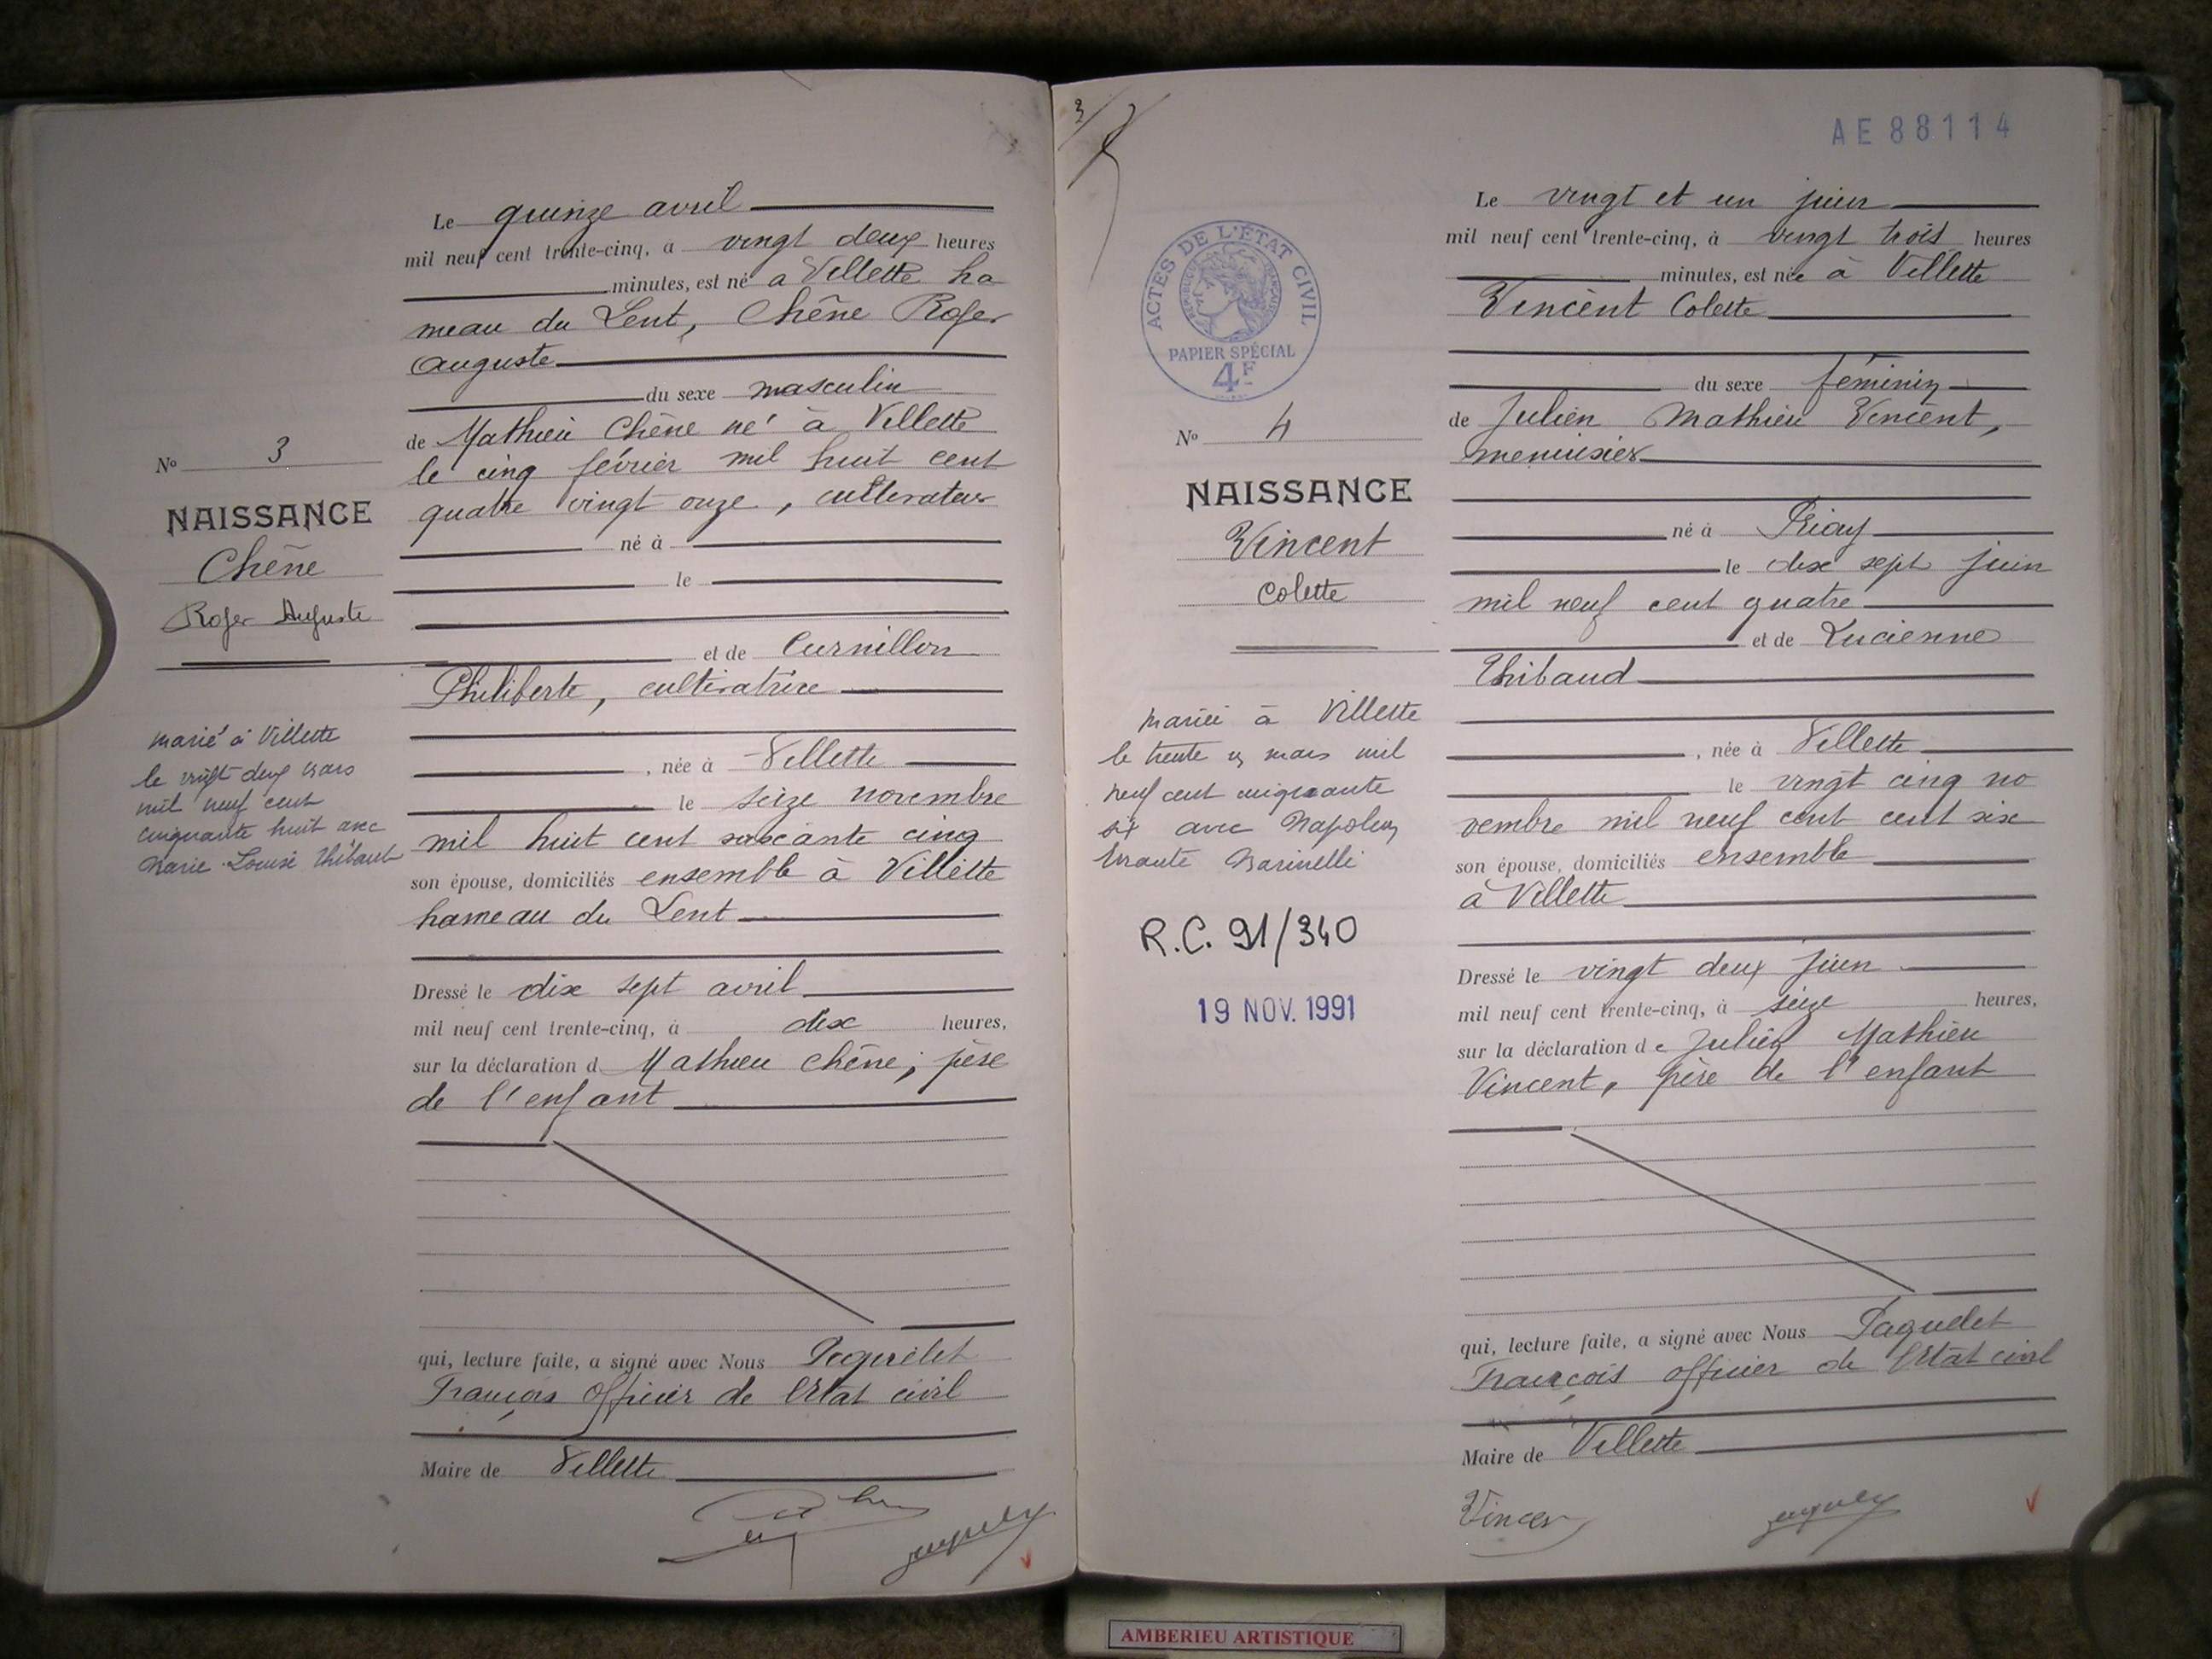 Le quinze avril
mil neuf cent trente-cinq, à vingt deux heures
minutes, est né à Villette ha
meau du Lent, Chêne Roger
Auguste
du sexe masculin
de Mathieu Chêne né à Villette
le cinq février mil huit cent
quatre vingt onze, cultivateur
né à
le
et de Curnillon
Philiberte, cultivatrice
, née à Villette
le seize novembre
mil huit cent soixante cinq
son épouse, domiciliés ensemble à Villette
hameau du Lent
Dressé le dix sept avril
mil neuf cent trente-cinq, à dix heures,
sur la déclaration d Mathieu Chêne, père
de l'enfant
qui, lecture faite, a signé avec Nous Paquelet
François officier de l'Etat civil
Maire de Villette
No 3
NAISSANCE
Chêne
Roger Auguste
marié à Villette
le vingt deux mars
mil neuf cent
cinquante huit avec
Marie-Louise Thibaut
3
AE 88114
Le vingt et un juin
mil neuf cent trente-cinq, à vingt trois heures
minutes, est née à Villette
Vincent Colette
du sexe féminin
de Julien Mathieu Vincent,
menuisier
né à
le dix sept juin
mil neuf cent quatre
et de Lucienne
Thibaud
, née à Villette
le vingt cinq no
vembre mil neuf cent cent six
son épouse, domiciliés ensemble
à Villette
Dressé le vingt deux juin
mil neuf cent trente-cinq, à seize heures,
sur la déclaration de Julien Mathieu
Vincent, père de l'enfant
qui, lecture faite, a signé avec Nous Paquelet
François officier de l'Etat civil
Maire de Villette
Vincent
ACTES DE L'ÉTAT CIVIL
RÉPUBLIQUE FRANÇAISE
PAPIER SPÉCIAL
4F
No 4
NAISSANCE
Vincent
Colette
mariée à Villette
le trente un mars mil
neuf cent cinquante
six avec Napoleon
Marinelli
R.C. 91/340
19 NOV. 1991
AMBERIEU ARTISTIQUE